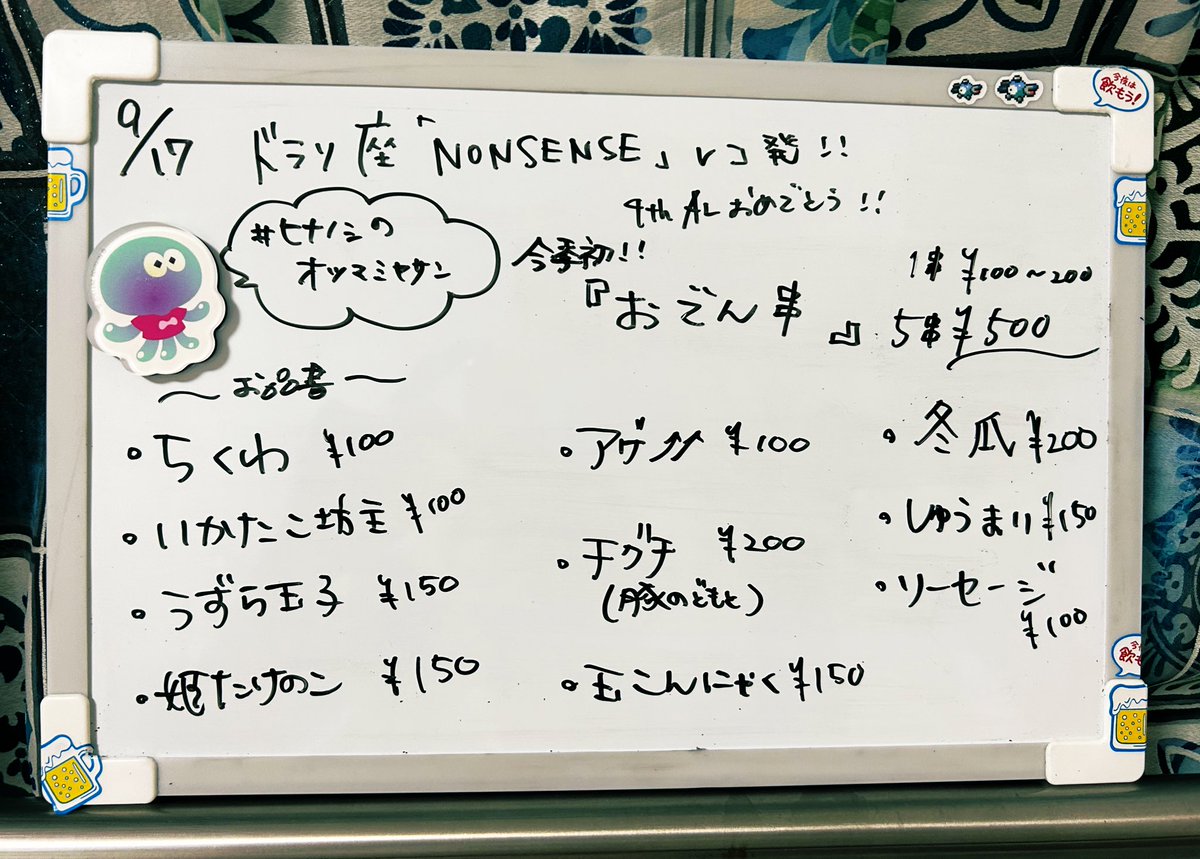 9/17 ドラソ座「NONSENSE」レコ発!!
4th ALおめでとう!!
#ヒナノシの
オツマミヤサン
今季初!!
『おでん串』
1串 ¥100~200
5串¥500
~お品書~
・ちくわ ¥100
・いかたこ坊主 ¥100
・うずら玉子 ¥150
・姫たけのこ ¥150
・アゲナナ ¥100
・チグチ ¥200
(豚のどもと)
・玉こんにゃく ¥150
・冬瓜 ¥200
・しゅうまい ¥150
・ソーセージ
¥100
今夜は
飲もう!